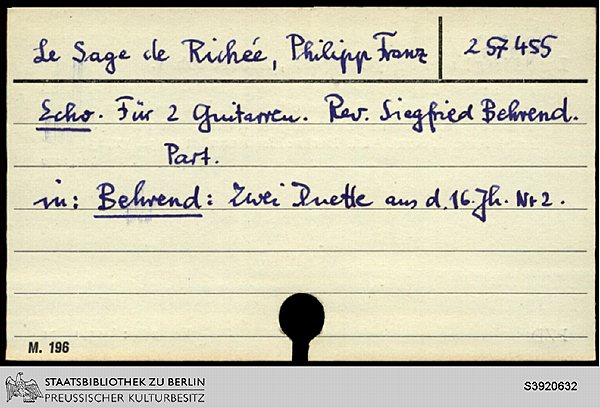 Le Sage de Richée, Philipp Franz 257455
Echo. Für 2 Guitarren. Rev. Siegfried Behrend.
Part.
in: Behrend: Zwei Duette aus d. 16. Jh. Nr 2.
M. 196
STAATSBIBLIOTHEK ZU BERLIN
PREUSSISCHER KULTURBESITZ
S3920632